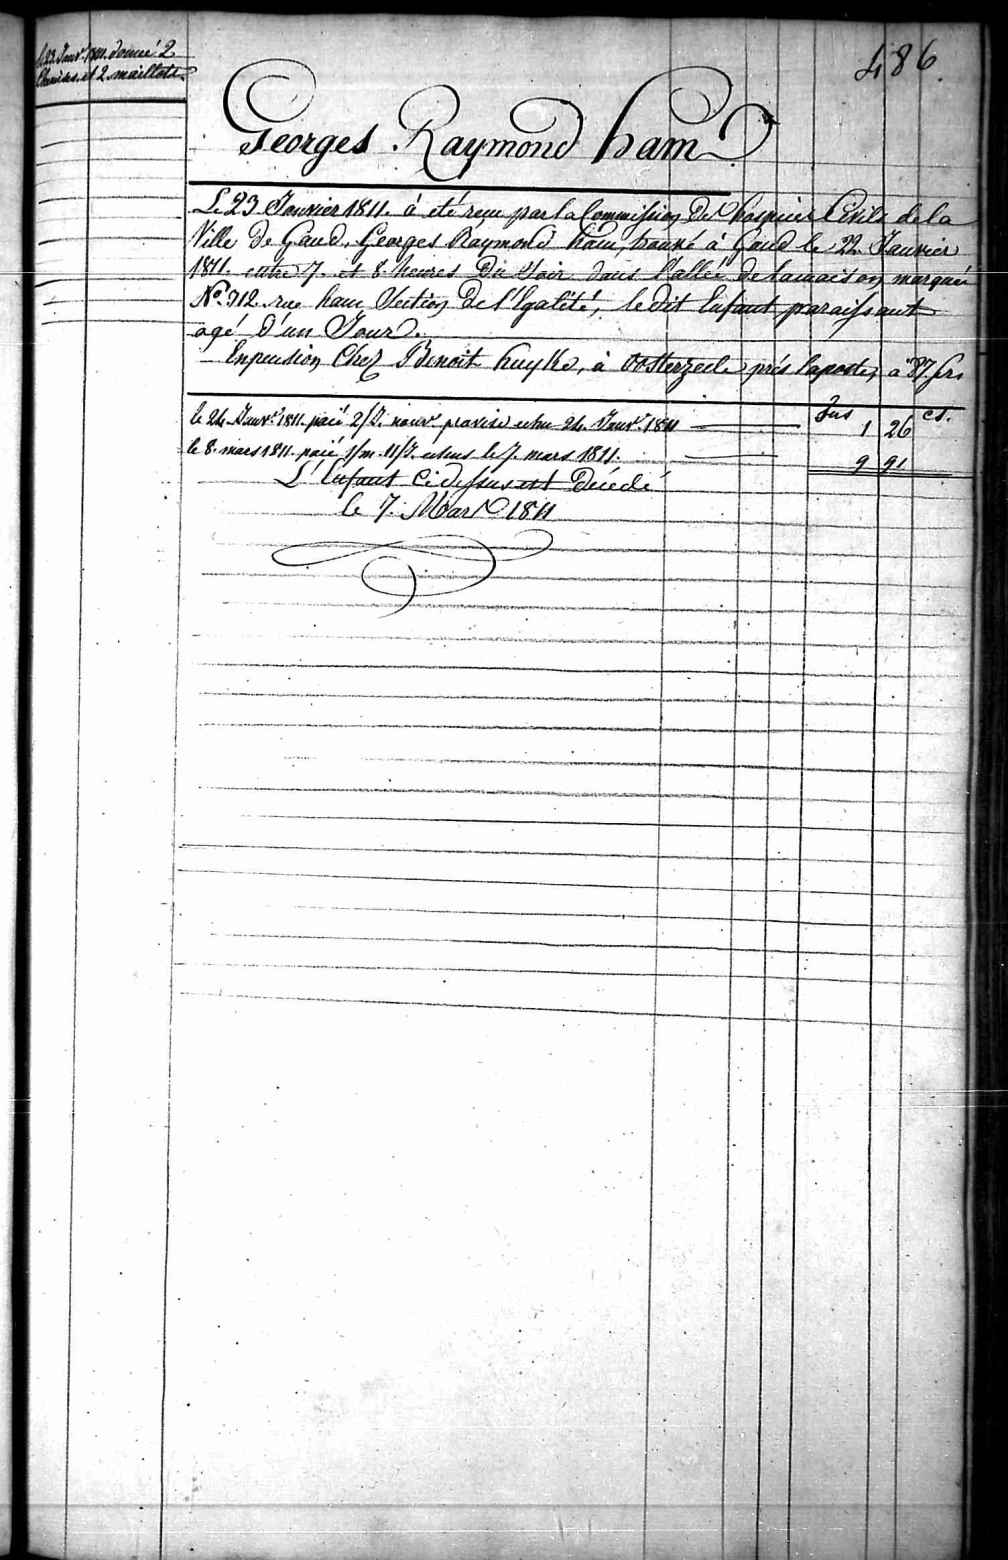 le 23 Janvr. 1811. donné 2
Chemises et 2 maillots
486.
Georges Raymond ham
Le 23 Janvier 1811. à été reçu par la Commission Des hospices Civils de la
Ville de Gand, Georges Raymond ham, trouvé à Gand le 22. Janvier
1811. entre 7. et 8. heures du Soir dans l'allée de la maison marquée
No. 312 rue ham Section De l'Egalité, le dit Enfant paraissant
agé d'un Jour.
En pension Chez Benoit huylke, à Oosterzeele près la poste, a 87. frs
frs ct.
le 24. Janvr. 1811. paié 2/J. nourr. provise echu 24. Janvr. 1811 1 26
le 8. mars 1811. paié 1/m. 11/J. echus le 7. mars 1811. 9 91
L'Enfant Cidessus est Décédé
le 7. Mars 1811